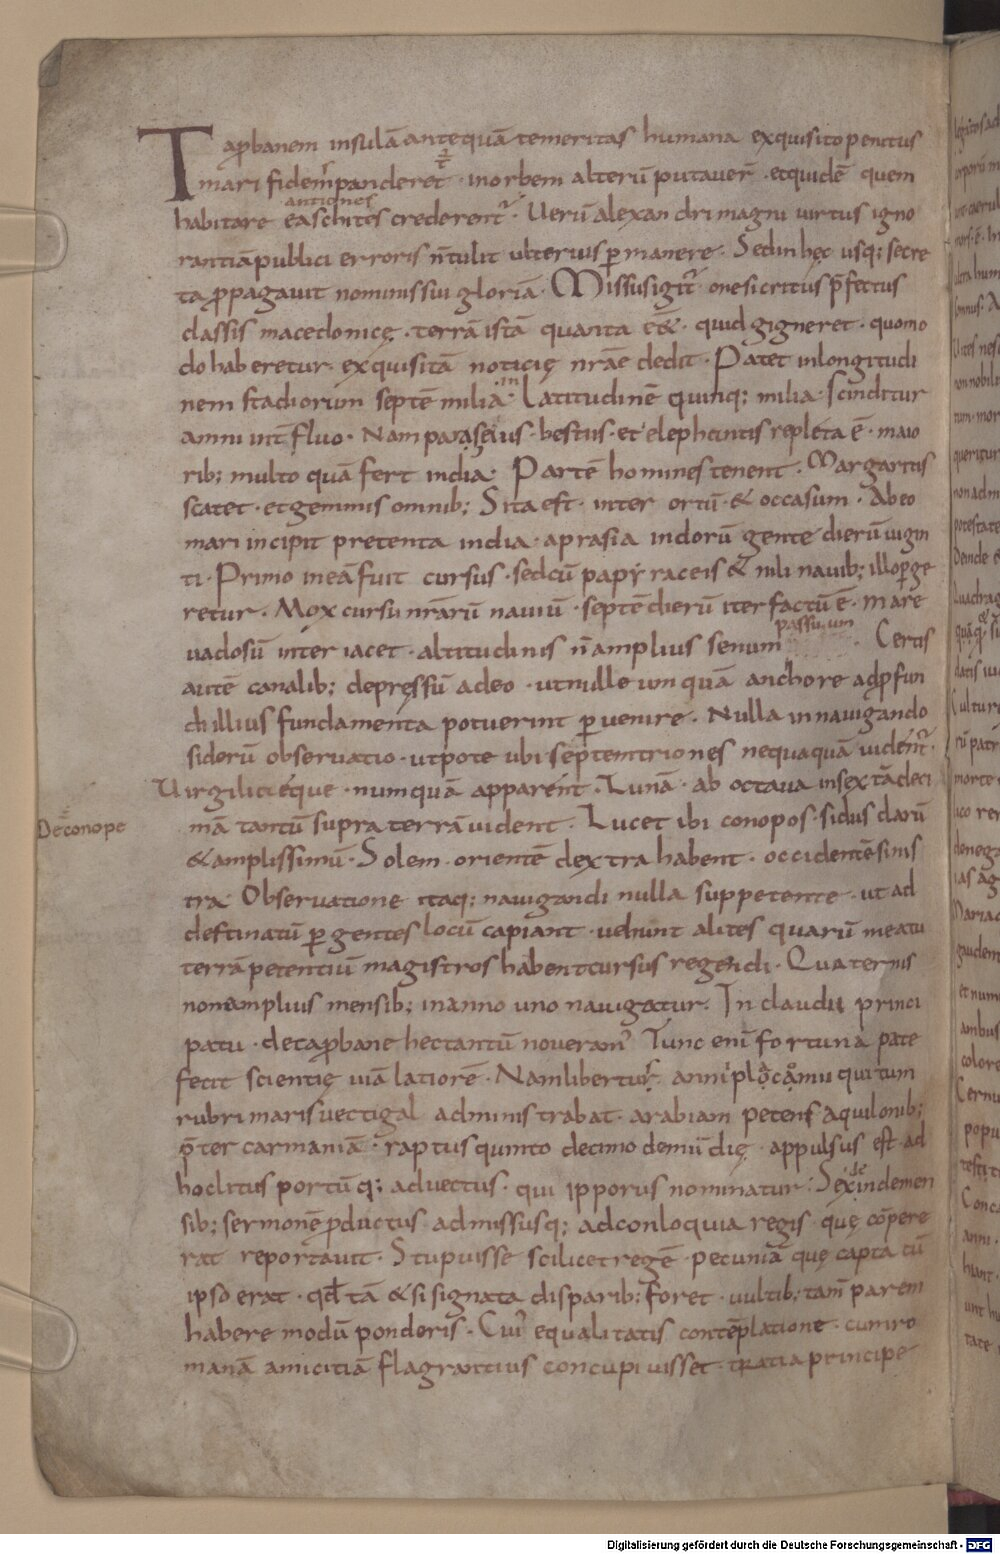 Taꝓbanem insulā antequā temeritas humana exquisito penitus
mari fidem panderet · in orbem alterū putaver̄ · et quidē quem
antiqnes
habitare easchites crederent᷑ · Verū alexandri magni virtus igno
rantiā publici erroris n̄ tulit ulterius ꝑmanere · Sed in hęc usq; secre
ta ꝓpagavit nominis sui gloriā · Missus igit᷑ onesicritus p̄fectus
classis macedonicę · terrā istā quanta eēt · quid gigneret · quomo
do haberetur exquisitā noticię nr̄ae dedit · Patet in longitudi
nem stadiorum septē milia · in latitudinē quinq; milia · scinditur
amni int̄fluo · Nam pars eius · bestiis · et elephantis repleta ē · maio
rib; multo quā fert india · Partē homines tenent · Margaritis
scatet · et gemmis omnib; Sita est · inter ortū & occasum · Ab eo
mari incipit pretenta india · a prasia indorū gente dierū uigin
ti · Primo in eā fuit cursus · sed cū papyraceis & nili nauib; illo ꝑge
retur · Mox cursu nr̄arū nauiū · septē dierū iter factū ē · mare
passuum
uadosū inter iacet · altitudinis n̄ amplius senum Certis
autē canalib; depressū adeo · ut nulle umquā anchore ad ꝓfun
di illius fundamenta potuerint ꝑuenire · Nulla in nauigando
siderū observatio · utpote ubi septemtriones nequaquā uident᷑ ·
Virgilieque · numquā apparent · Lunā · ab octaua in sextā deci
mā tantū supra terrā uident · Lucet ibi conopos · sidus clarū
De conope
& amplissimū · Solem orientē dextra habent · occidentē sinis
tra Observatione itaq; nauigandi nulla suppetente · ut ad
destinatū ꝑgentes locū capiant · uehunt alites quarū meatū
terrā petentiū magistros habent cursus regendi · Quaternis
non amplius mensib; in anno uno nauigatur. In claudii princi
patū · de taꝓbane hec tantū noueram᷑ Tunc enī fortuna pate
fecit scientię uiā latiorē · Nam libertus annii plocamii qui tum
rubri maris uectigal administrabat · arabiam petens aquilonib;
p̄ter carmaniā · raptus quinto decimo demū dię · appulsus est · ad
hoc litus portūq; aduectus · qui ipporus nominatur · Sex inde men
sib; sermonē ꝓductus admissusq; ad conloquia regis · quę cōpere
rat reportauit · Stupuisse scilicet regē · pecuniā quę capta cū
ipso erat · qđ tā & si signata disparib; foret uultib; tam̄ parem
habere modū ponderis · Cui᷒ equalitatis contēplatione · cum ro
manā amicitiā flagrantius concupiuisset · ratia principe